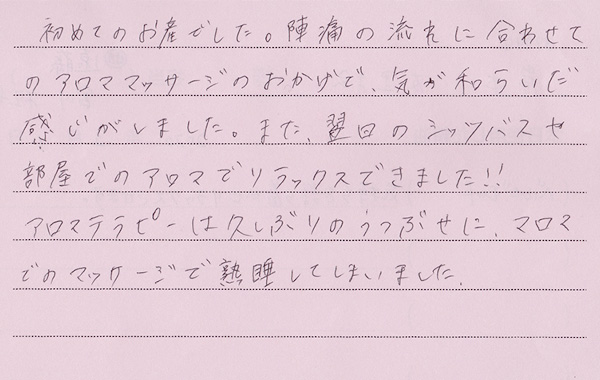 初めてのお産でした。陣痛の流れに合わせて
のアロママッサージのおかげで、気が和らいだ
感じがしました。また、翌日のシッツバスや
部屋でのアロマでリラックスできました!!
アロマテラピーは久しぶりのうつぶせに、マロマ
でのマッサージで熟睡してしまいました.